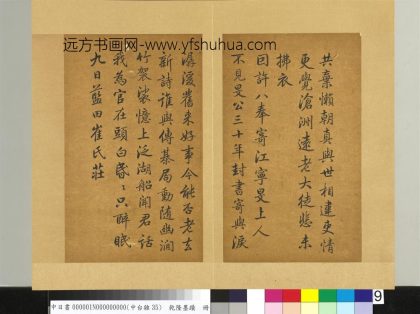 远方书画网-www.yfshuhua.com
共棄懶朝真與世相違吏情
更覺滄洲遠老大徒悲未
拂衣
因許八奉寄江寧旻上人
不見旻公三十年封書寄與淚
潺湲舊來好事今能否老去
新詩誰與傳棋局動隨幽澗
竹袈裟憶上泛湖船聞君話
我為官在頭白昏昏只醉眠
九日藍田崔氏莊
中日書 000001N000000000(中台雜35) 乾隆墨蹟 冊
9